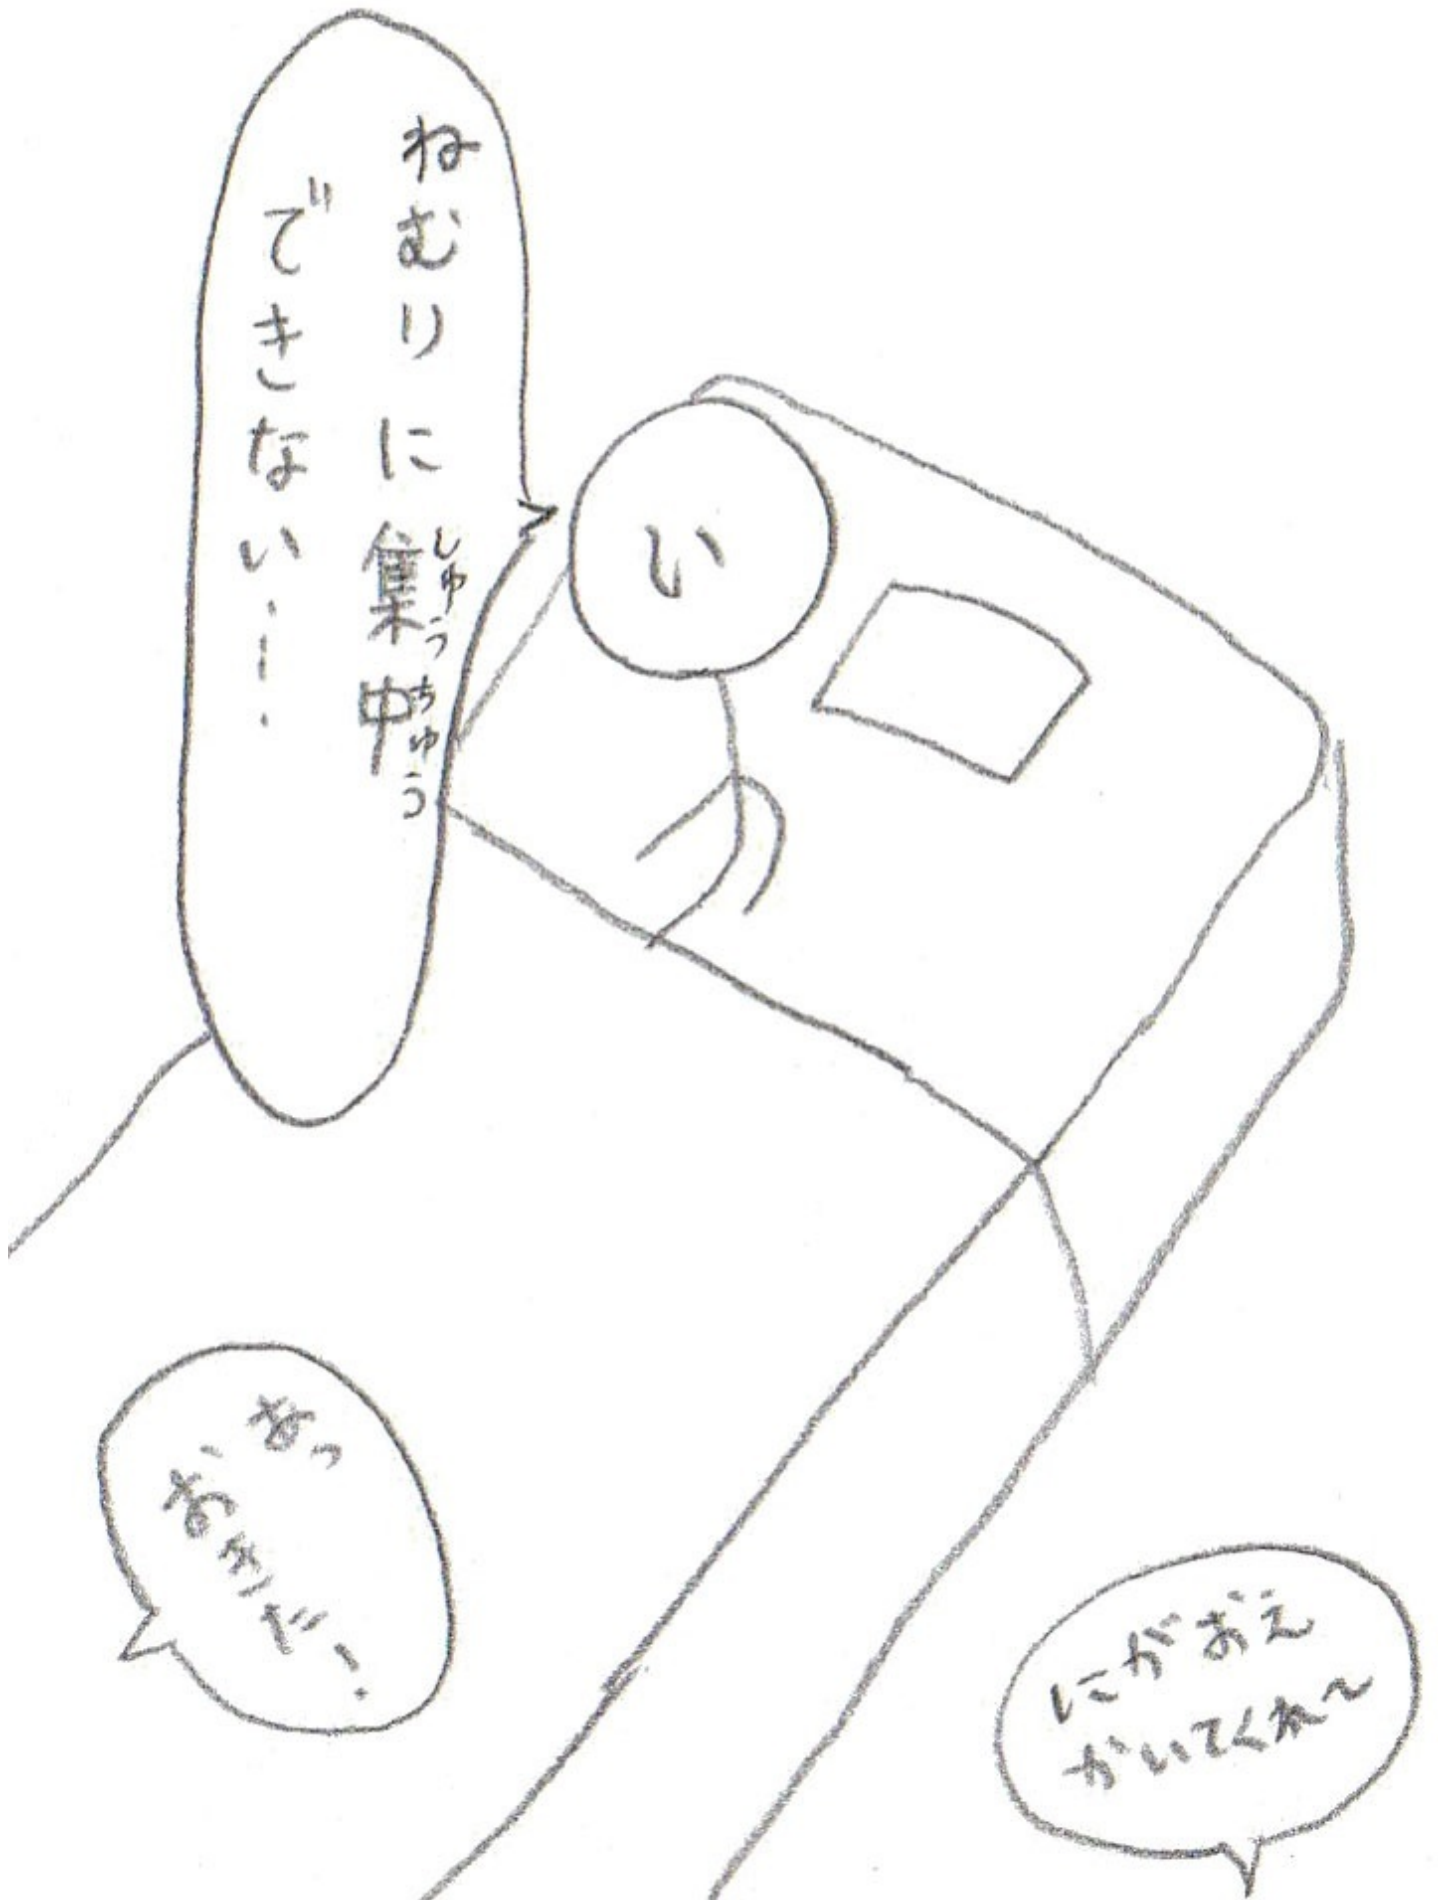 ねむりに集中
しゅうちゅう
できない…
い
あっ
おきだ!
にがおえ
かいてくれ～